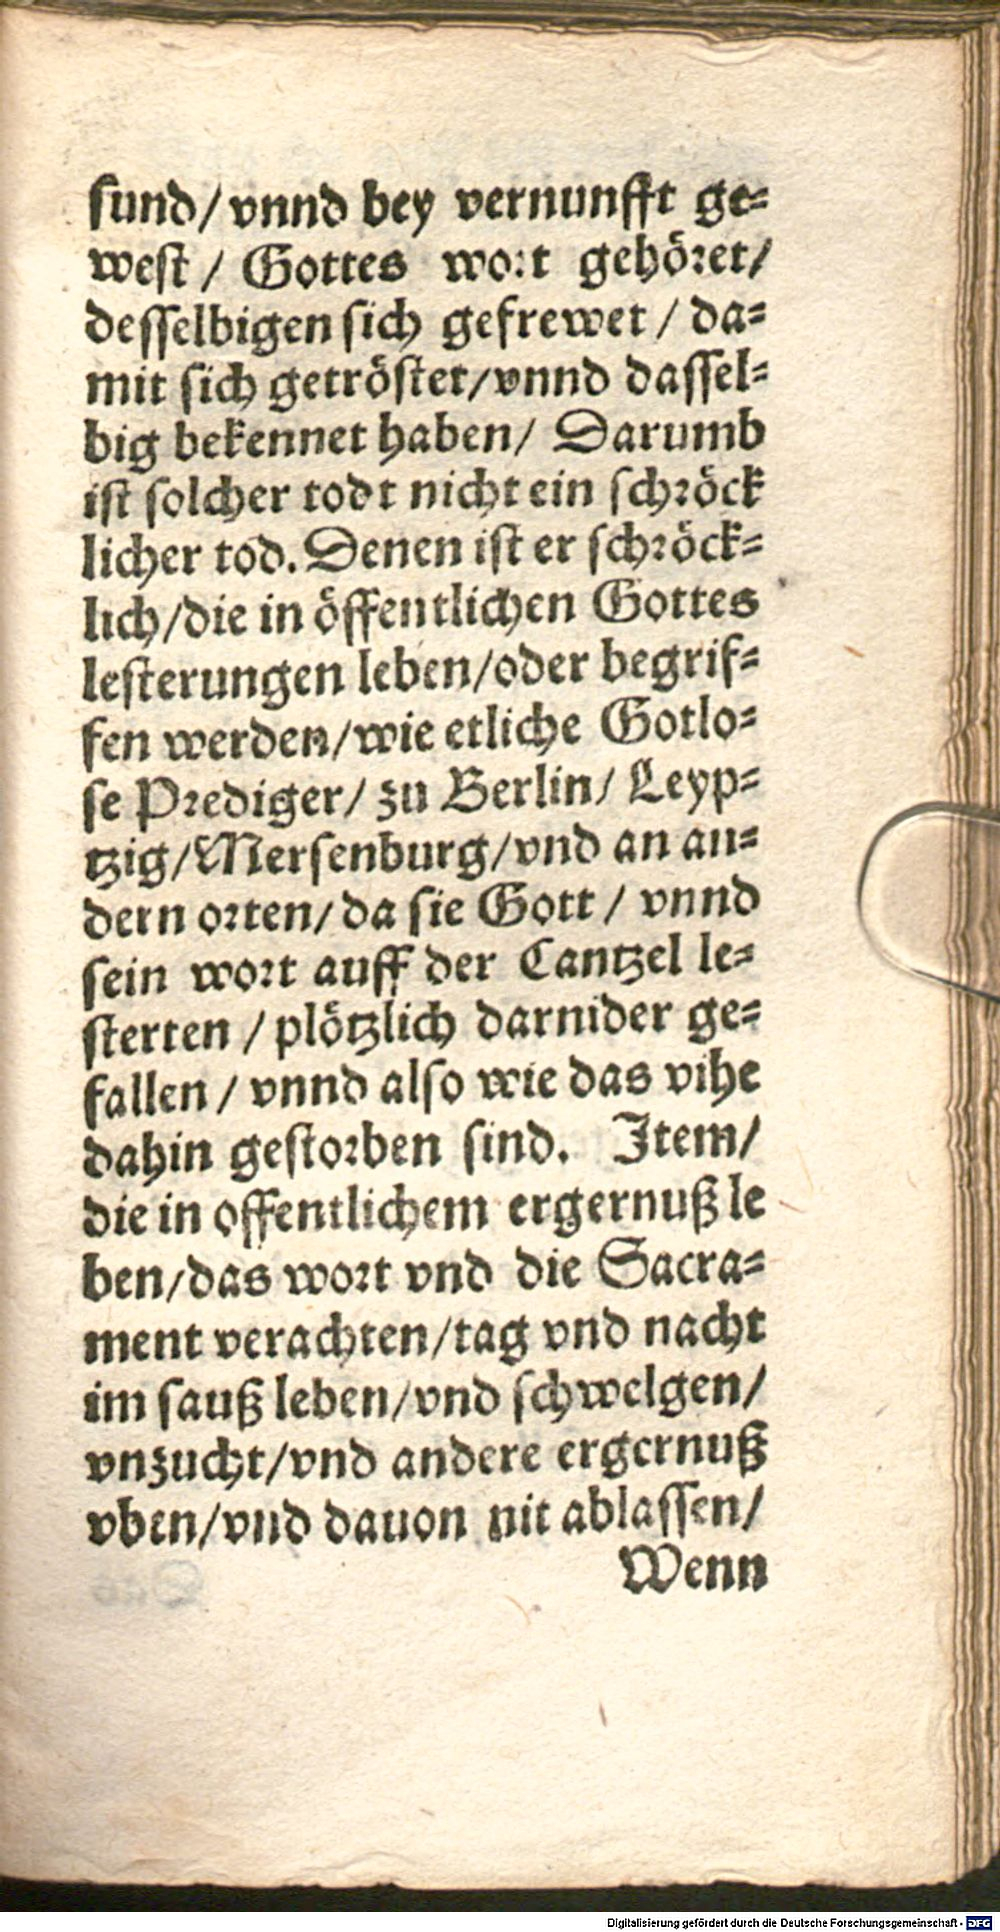 sund/vnnd bey vernunfft ge-
west / Gottes wort gehöret/
desselbigen sich gefrewet / da-
mit sich getröstet/vnnd dassel-
big bekennet haben/ Darumb
ist solcher todt nicht ein schröck
licher tod. Denen ist er schröck-
lich/die in öffentlichen Gottes
lesterungen leben/oder begrif-
fen werden/wie etliche Gotlo-
se Prediger/ zu Berlin/ Leyp-
tzig/Mersenburg/vnd an an-
dern orten/ da sie Gott / vnnd
sein wort auff der Cantzel le-
sterten / plötzlich darnider ge-
fallen / vnnd also wie das vihe
dahin gestorben sind. Item/
die in offentlichem ergernuß le
ben/das wort vnd die Sacra-
ment verachten/tag vnd nacht
im sauß leben/vnd schwelgen/
vnzucht/vnd andere ergernuß
vben/vnd dauon nit ablassen/
Wenn
Digitalisierung gefördert durch die Deutsche Forschungsgemeinschaft - DFG